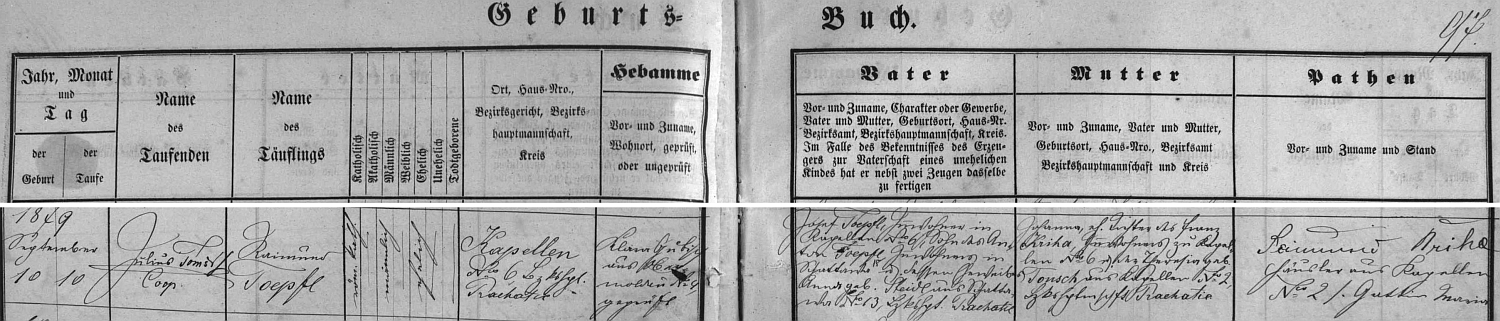 Geburts-
Buch.
97.
Jahr, Monat
und
Tag
der
Geburt
der
Taufe
Name
des
Taufenden
Name
des
Täuflings
Katholisch
Akatholisch
Männlich
Weiblich
Ehelich
Unehelich
Todtgeborene
Ort, Haus-Nro.,
Bezirksgericht, Bezirks-
hauptmannschaft,
Kreis
Hebamme
Vor- und Zuname,
Wohnort, geprüft,
oder ungeprüft
Vater
Vor- und Zuname, Charakter oder Gewerbe,
Vater und Mutter, Geburtsort, Haus-Nr.
Bezirksamt, Bezirkshauptmannschaft, Kreis.
Im Falle des Bekenntnisses des Erzeu-
gers zur Vaterschaft eines unehelichen
Kindes hat er nebst zwei Zeugen dasselbe
zu fertigen
Mutter
Vor- und Zuname, Vater und Mutter,
Geburtsort, Haus-Nro., Bezirksamt
Bezirkshauptmannschaft und Kreis
Pathen
Vor- und Zuname und Stand
September
10 10
Julius
Coop.
Raimund
Toepfl
männlich
ehelich
Kapellen
No 6
Prachatic
Klara
aus
geprüft
Josef Toepfl, Inwohner in
Kapellen No 6, Sohn des An-
ton Toepfl, Inwohners in
Anna geb. aus Schatta-
wa No 13, Prachatic
Johanna, eh. Tochter des Franz
Kriha, Inwohners zu Kapel-
len No 6 u. der Theresia geb.
aus Kapellen No 2,
Prachatic
Raimund Kriha
Häusler aus Kapellen
No 2 /. Gattin Maria